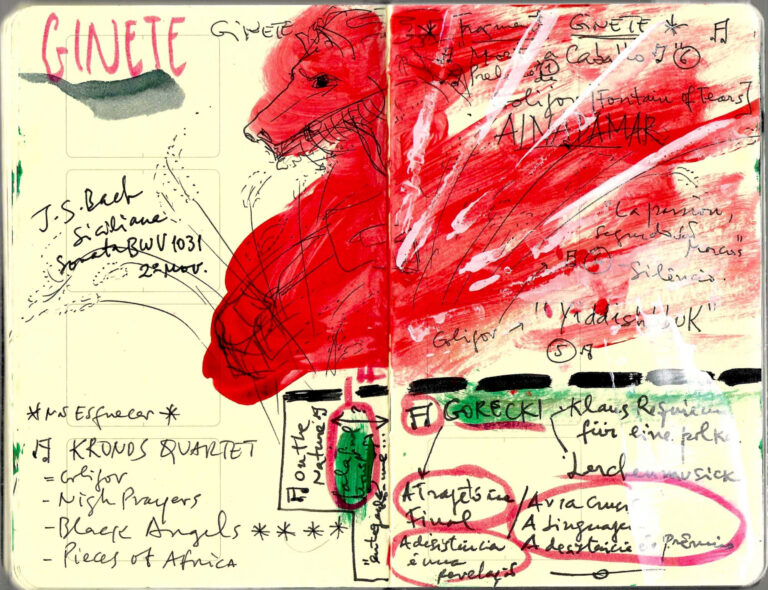 GINETE
GINETE
J.S. Bach
Siciliana
Sonata BWV 1031
2º Mov.
*Não Esquecer*
KRONOS QUARTET
= Golijov
- Nigh Prayers
- Black Angels ****
- Pieces of Africa
on the
Nature of
* Fragment GINETE *
Caballo 6
Prelude
Golijov [Fontain of Tears]
AINADAMAR
"La pasion,
segundo S.
Marcos"
Silêncio
Golijov → "Yiddishbbuk"
5
GORECKI
Klaus Requiem
für eine polka
Lerchenmusick
A Trajetória
Final
A desistência
é uma
revelação
A via crucis
A Linguagem
A desistência é o prêmio